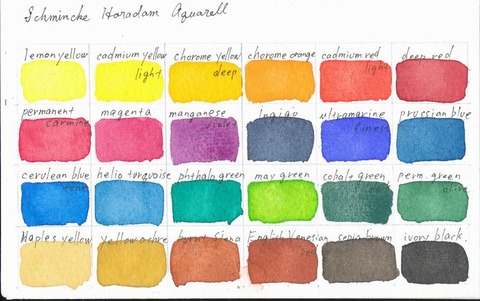 Schmincke Horadam Aquarell
lemon yellow cadmium yellow chorome yellow chorome orange cadmium red deep red
light deep light
permanent magenta manganese indigo ultramarine prussian blue
carmine violet finest
cerulean blue helio turquoise phthalo green may green cobalt green perm. green
tone olive
Naples yellow yellow ochre burnt siena English Venetian sepia brown ivory black
red